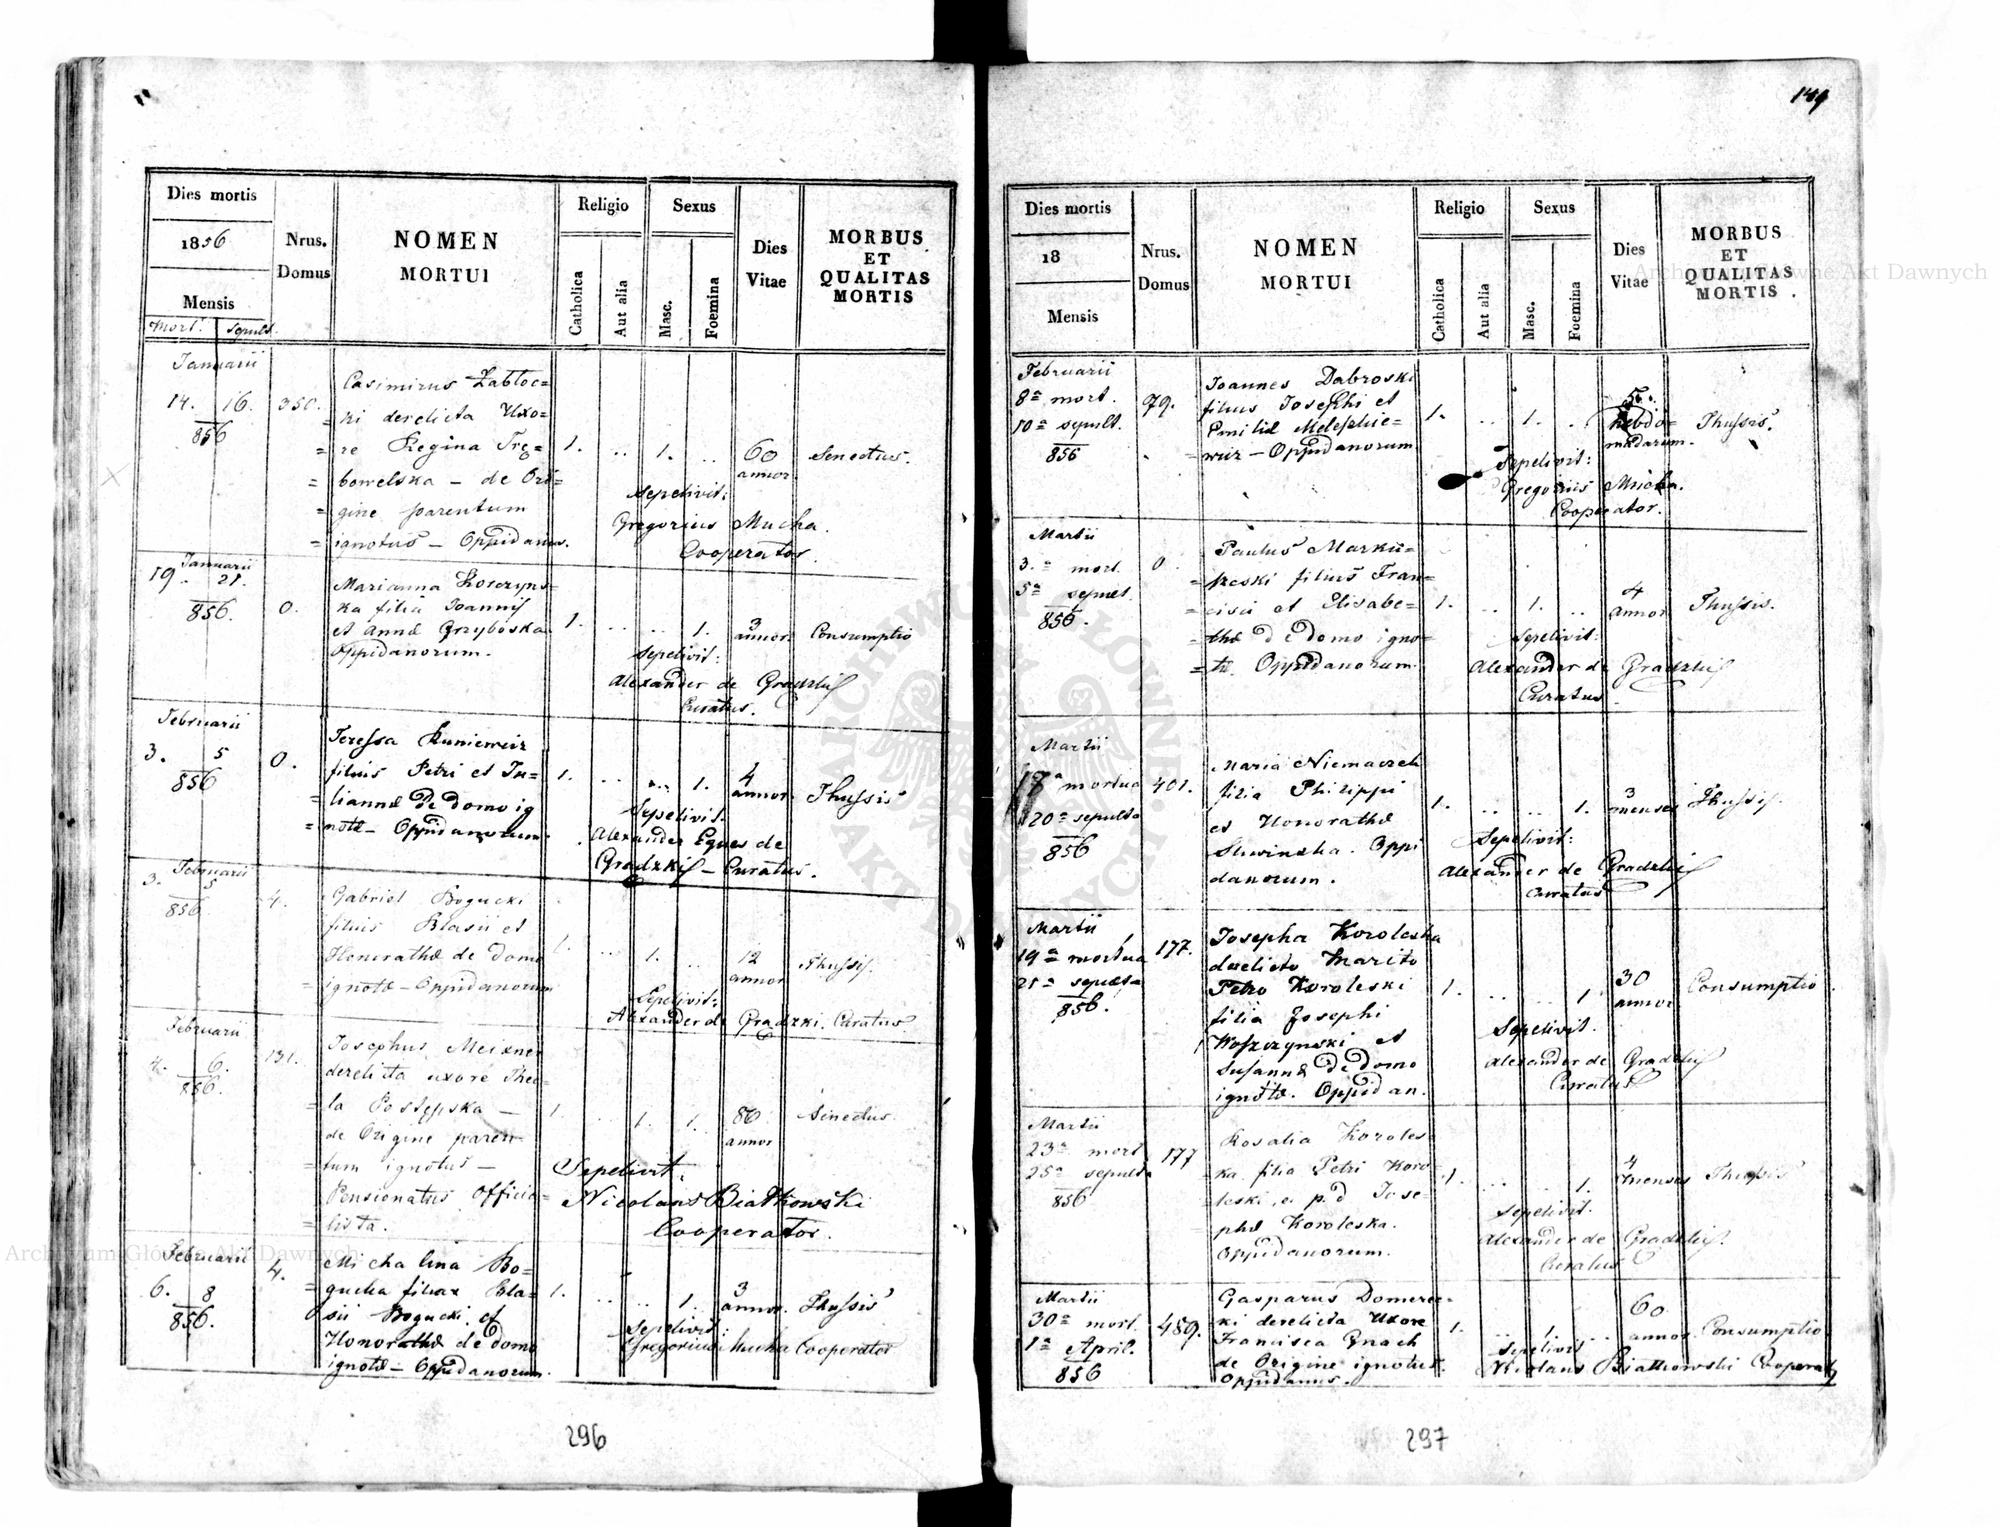 149
Dies mortis
1856
Mensis
Mort. Sepult.
Nrus. Domus
NOMEN
MORTUI
Religio
Catholica
Aut alia
Sexus
Masc.
Foemina
Dies
Vitae
MORBUS
ET
QUALITAS
MORTIS
Januarii
14. 16.
856
350.
Casimirus Zabłoc=
=ki derelicta Uxo=
=re Regina Trę=
=bowelska – de Ori=
=gine parentum
=ignotus – Oppidanus.
1. .. 1. ..
60
annor.
Senectus.
Sepelivit:
Gregorius Mucha
Cooperator
Januarii
19. 21.
856.
0.
Marianna
ka filia Joannis
et Annæ Grzyboska
Oppidanorum.
1. .. .. 1.
3
annor.
Consumptio
Sepelivit:
Alexander de Gradzkij
Curatus.
Februarii
3. 5
856
0.
Teressa Kuniewicz
filius Petri et Ju=
=liannæ de domo ig
=notæ – Oppidanorum
1. .. .. 1.
4
annor.
Thussis
Sepelivit.
Alexander Eques de
Gradzkij – Curatus.
Februarii
3. 5
856
4.
Gabriel Bogucki
filius Blasii et
Honorathæ de domo
=ignotæ – Oppidanorum
1. .. 1. ..
12
annor
Thussis.
Sepelivit:
Alexander de Gradzki. Curatus
Februarii
4. 6.
856.
131.
Josephus Meixner
derelicta uxore Thec=
=la Postępska –
de Origine paren
=tum ignotus –
Pensionatus Officia=
=lista.
1. .. 1. 1.
80
annor
Senectus
Sepelivit.
Nicolaus Białkowski
Cooperator.
Februarii
6. 8
856.
4.
Michalina Bo=
=gucka filiae Bla=
sii Bogucki et
Honorathæ de domo
ignotæ – Oppidanorum.
1. .. .. 1.
3
annor.
Thussis
Sepelivit:
Gregorius Mucha Cooperator
296
Dies mortis
18
Mensis
Nrus.
Domus
NOMEN
MORTUI
Religio
Catholica
Aut alia
Sexus
Masc.
Foemina
Dies
Vitae
MORBUS
ET
QUALITAS
MORTIS.
Februarii
8a mort.
10a sepult.
856
79.
Joannes Dabroski
filius Josephi et
Emiliæ Melephie=
=wicz – Oppidanorum
1. .. 1. ..
hebdo=
madarum.
Thussis.
Sepelivit:
Gregorius Mucha.
Cooperator.
Martii
3.a mort.
5a sepult.
856.
0
Paulus Marku=
=szeski filius Fran=
=cisci et Elisabe=
=thæ de domo igno=
=tæ. Oppidanorum.
1. .. 1. ..
4
annor
Thussis.
Sepelivit:
Alexander de Gradzkij
Curatus.
Martii
17a mortua
20a sepulta
856
401.
Maria Niemaczek
filia Philippi
et Honorathæ
Sliwinska. Oppi
danorum.
1. .. .. 1.
3
menses
Thussis.
Sepelivit:
Alexander de Gradzkij
Curatus
Martii
19a mortua
21a sepulta
856.
177.
Josepha Koroleska
derelicto Marito
Petro Koroleski
filia Josephi
Koszczynski et
Susannæ de domo
ignotæ. Oppidan.
1. .. .. 1
30
annor
Consumptio.
Sepelivit.
Alexander de Gradzkij
Curatus
Martii
23a mort.
25a sepulta
856
177
Rosalia Koroles
ka filia Petri Koro
leski, e p.d Jose=
phæ Koroleska.
Oppidanorum.
1. .. .. 1.
4
menses
Thussis
Sepelivit.
Alexander de Gradzkij.
Curatus
Martii
30a mort.
1a April.
856
489.
Gasparus Domerec=
ki derelicta Uxore
Francisca Gnach
de Origine ignotus.
Oppidanus.
1. .. 1. ..
60
annor.
Consumptio.
Sepelivit
Nicolaus Białkowski Cooperat
297
Archiwum Główne Akt Dawnych
Archiwum Główne Akt Dawnych
ARCHIWUM GŁÓWNE AKT DAWNYCH